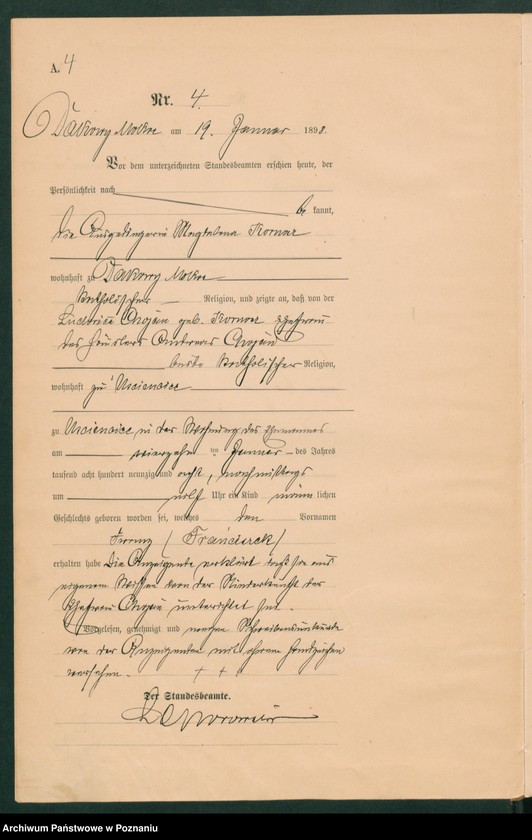 A. 4
Nr. 4.
Dakowy Mokre am 19. Januar 1898.
Vor dem unterzeichneten Standesbeamten erschien heute, der
Persönlichkeit nach
be kannt,
die Ausgedingerin Magdalena Komar
wohnhaft zu Dakowy Mokre
katholischer Religion, und zeigte an, daß von der
Ludovica Chojan geb. Komar Ehefrau
des Häuslers Andreas Chojan
beide katholischer Religion,
wohnhaft zu Usciencice
zu Usciencice in der Wohnung des Ehemannes
am vierzehn ten Januar des Jahres
tausend acht hundert neunzig und acht, nachmittags
um elf Uhr ein Kind männ lichen
Geschlechts geboren worden sei, welches den Vornamen
Franz (Franciszek)
erhalten habe Die Anzeigende erklärt daß sie aus
eigenem Wissen von der Niederkunft der
Ehefrau Chojan unterrichtet sei.
Vorgelesen, genehmigt und wegen Schreibensunkunde
von der Anzeigenden mit ihrem Handzeichen
versehen. + + +
Der Standesbeamte.
Archiwum Państwowe w Poznaniu